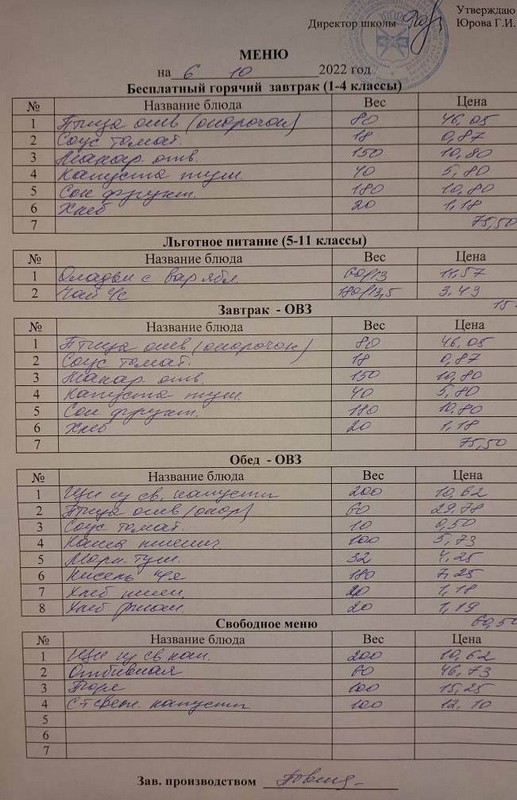 Утверждаю
Директор школы Юрова Г.И.
МЕНЮ
на 6 10 2022 год
Бесплатный горячий завтрак (1-4 классы)
№ Название блюда Вес Цена
1 Птица отв (окорочок) 80 46,05
2 Соус томат. 18 0,87
3 Макар отв. 150 10,80
4 Капуста туш 40 5,80
5 Сок фрукт. 180 10,80
6 Хлеб 20 1,18
7 75,50
Льготное питание (5-11 классы)
№ Название блюда Вес Цена
1 Оладьи с вар ябл 60/13 11,57
2 Чай ч/с 180/13,5 3,43
15
Завтрак - ОВЗ
№ Название блюда Вес Цена
1 Птица отв (окорочок) 80 46,05
2 Соус томат. 18 0,87
3 Макар отв. 150 10,80
4 Капуста туш. 40 5,80
5 Сок фрукт. 180 10,80
6 Хлеб 20 1,18
7 75,50
Обед - ОВЗ
№ Название блюда Вес Цена
1 Щи из св. капусты 200 10,62
2 Птица отв (окор) 60 29,78
3 Соус томат. 10 0,50
4 Каша пшенич 100 5,73
5 Морк. туш. 32 4,25
6 Кисель 180 7,25
7 Хлеб пшен. 20 1,18
8 Хлеб ржан. 20 1,19
60,50
Свободное меню
№ Название блюда Вес Цена
1 Щи из св кап. 200 10,62
2 Отбивная 60 46,73
3 Пюре 100 15,25
4 С-т свеж. капусты 100 12,10
5
6
7
Зав. производством